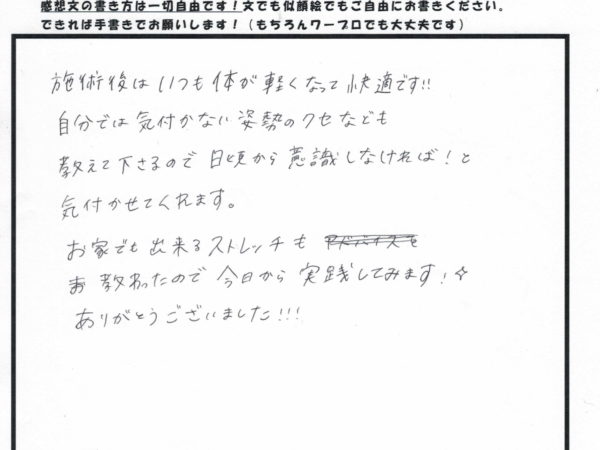 感想文の書き方は一切自由です！文でも似顔絵でもご自由にお書きください。
できれば手書きでお願いします！（もちろんワープロでも大丈夫です）
施術後はいつも体が軽くなって快適です!!
自分では気付かない姿勢のクセなども
教えて下さるので日頃から意識しなければ！と
気付かせてくれます。
お家でも出来るストレッチも アドバイスを
お教わったので今日から実践してみます！☆
ありがとうございました!!!